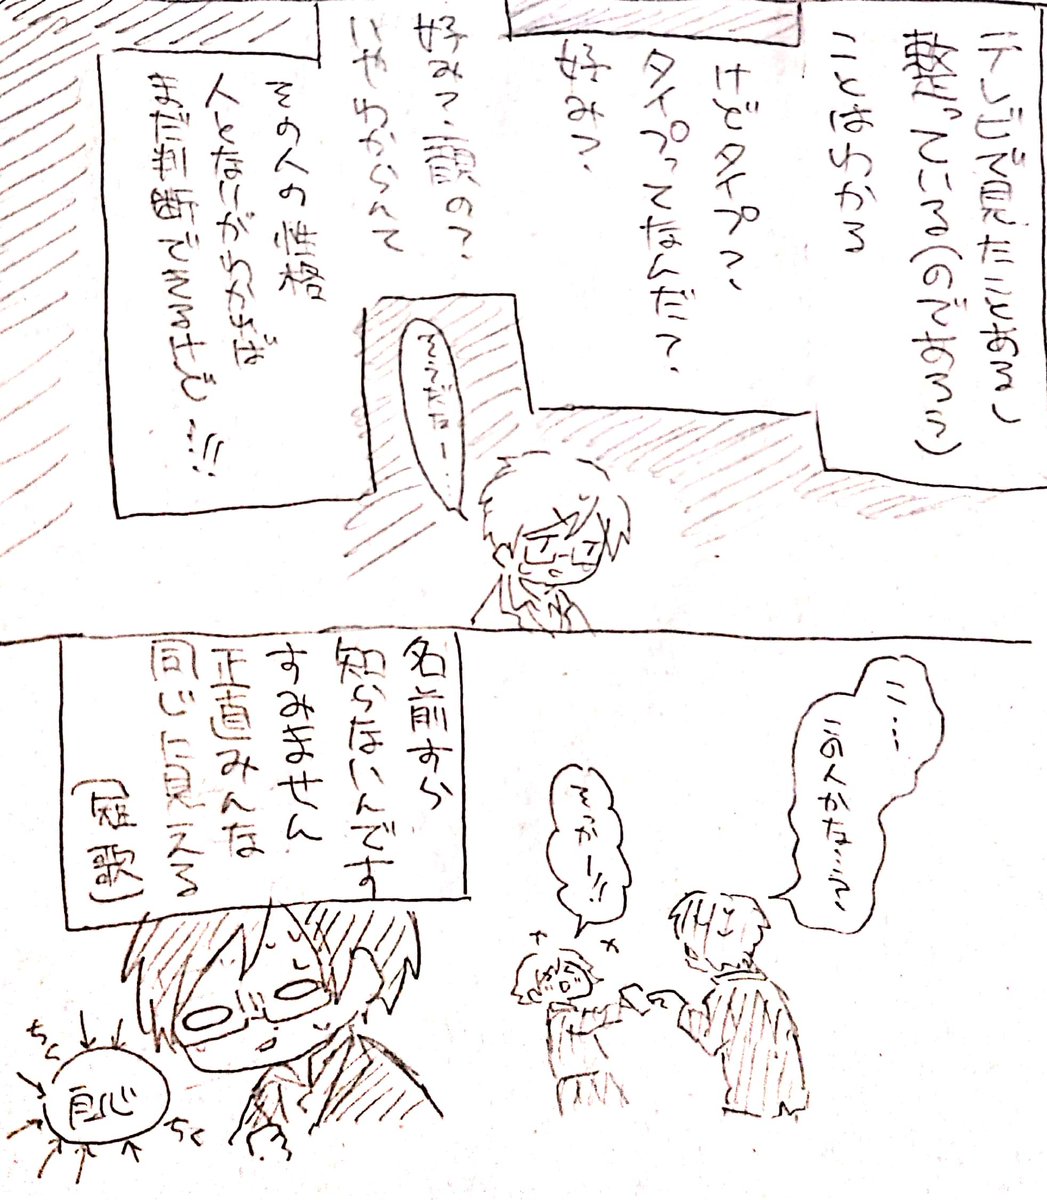 テレビで見たことあるし
整っている(のであろう)
ことはわかる
けどタイプ?
タイプってなんだ?
好み?
好み?顔の?
いやわからんて
その人の性格
人となりがわかれば
まだ判断できるけど…!!
そうだなー
こ…
この人かな…?
そっかー!!
名前すら
知らないんです
すみません
正直みんな
同じに見える
(短歌)
ちく
良心
ちく